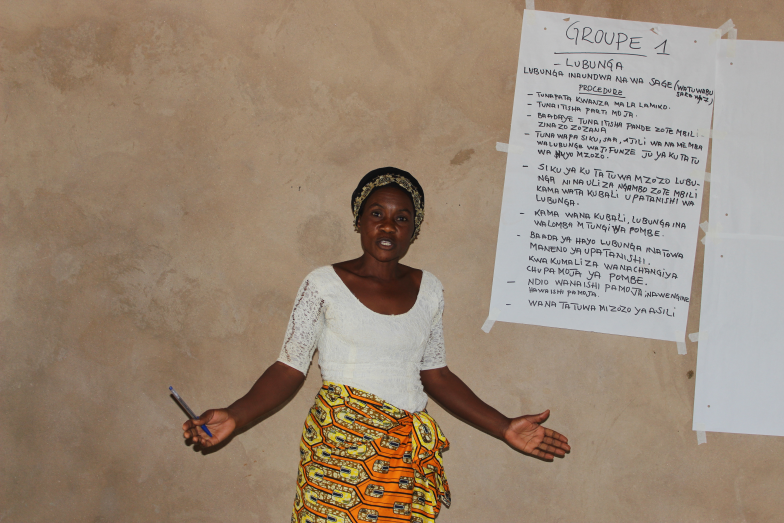 GROUPE 1
- LUBUNGA
LUBUNGA INAUNDWA NA WA SAGE (WATU WABU
SARA NAZ)
PROCEDURE
- TUNAPATA KWANZA MALALAMIKO.
- TUNAITISHA PARTI MOJA.
- BAADAYE TUNAITISHA PANDE ZOTE MBILI-
ZINAZOZOZANA
- TUNAWAPA SIKU, SAA, AJILI WANAMEMBA
WALUBUNGA WAJIFUNZE JU YA KUTATU
WA HUYO MZOZO.
- SIKU YA KUTATUWA MZOZO LUBU-
NGA NINAULIZA NGAMBO ZOTE MBILI
KAMA WATA KUBALI UPATANISHI WA
LUBUNGA.
- KAMA WANAKUBALI, LUBUNGA INA
WALOMBA MTUNGI WA POMBE.
- BAADA YA HAYO LUBUNGA INATOWA
MANENO YA UPATANISHI.
KWA KUMALIZA WANACHANGIYA
CHUPA MOJA YA POMBE.
- NDIO WANAISHI PAMOJA, NA WENGINE
HAWAISHI PAMOJA.
- WANATATUWA MIZOZO YA ASILI